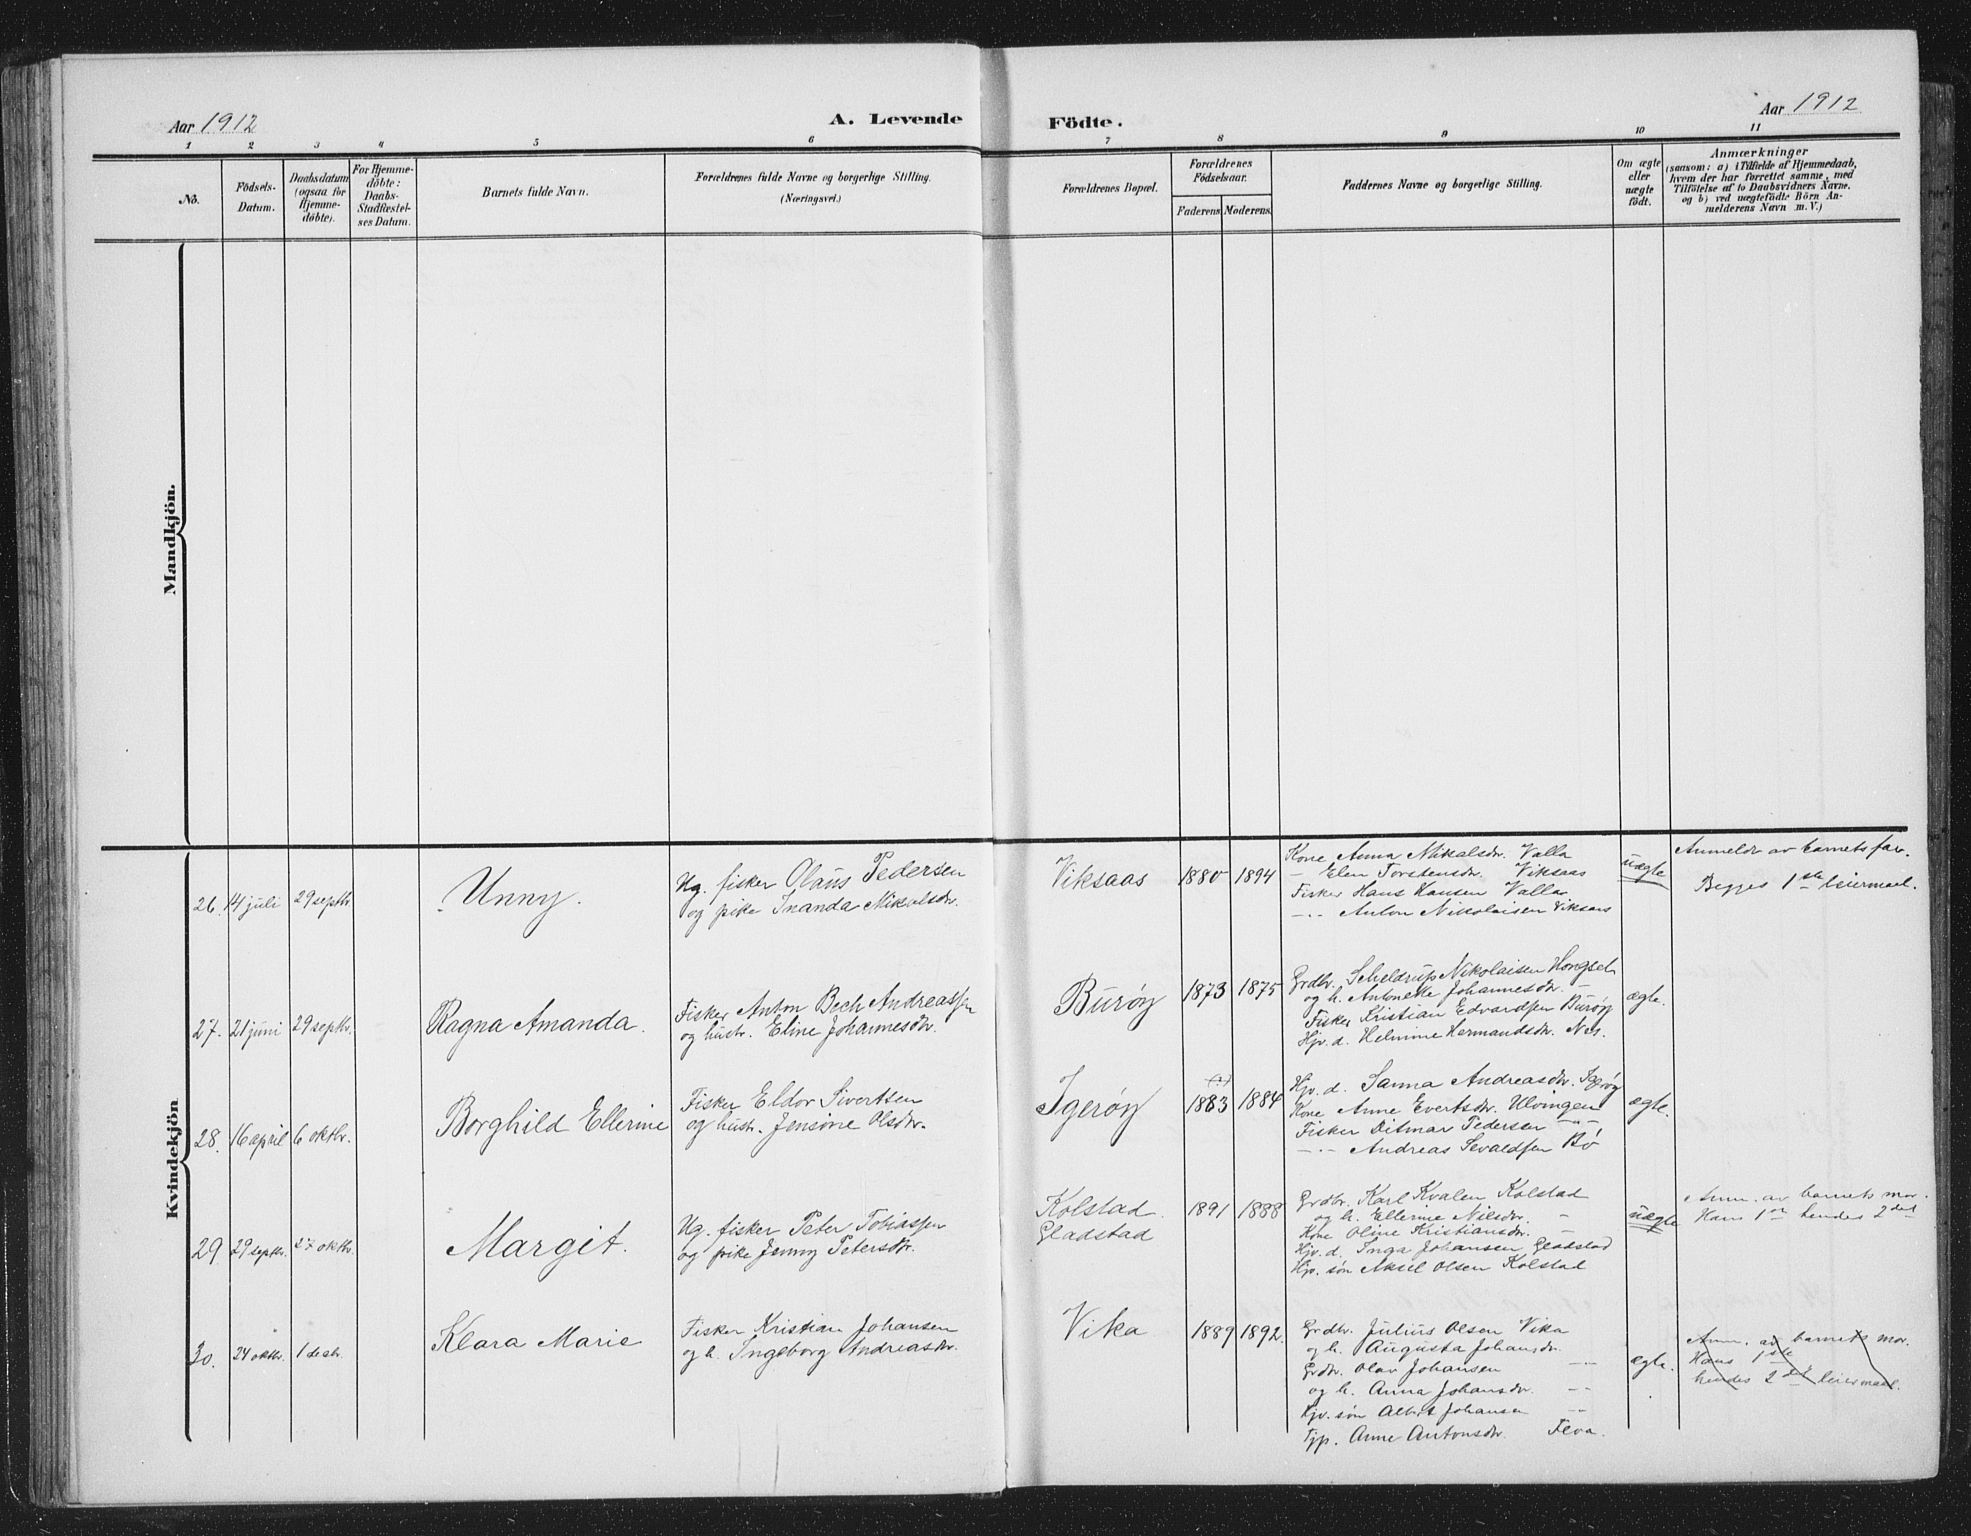 Aar 1912
A. Levende
Födte.
Aar 1912
1 2 3 4 5 6 7 8 9 10 11
No.
Födsels-
Datum.
Daabsdatum
(ogsaa for
Hjemme-
döbte).
For Hjemme-
döbte:
Daabs-
Stadfæstel-
ses Datum.
Barnets fulde Navn.
Forældrenes fulde Navne og borgerlige Stilling.
(Næringsvei.)
Forældrenes Bopæl.
Forældrenes
Födselsaar.
Faderens. Moderens.
Faddernes Navne og borgerlige Stilling.
Om ægte
eller
uægte
födt.
Anmærkninger
(saasom: a) i Tilfælde af Hjemmedaab,
hvem der har forrettet samme, med
Tilföielse af to Daabsvidners Navne.
og b) ved uægtefödte Börn An-
melderens Navn m. V.)
Mandkjön.
Kvindekjön
26. 14 juli 29 septbr
Unny.
Ug. fisker Olaus Pedersen
og pike Inanda Mikalsdr.
Viksaas
1880 1894
Kone Anna Mikalsdr. Valla
— Elen Torstensdr. Viksaas
Fisker Hans Hansen Valla
—..— Anton Nikolaisen Viksaas
uægte
Anmeldr av barnets far.
Begges 1ste leiermaal.
27. 21 juni 29 septbr.
Ragna Amanda.
Fisker Anton Bech Andreassen
og hustr. Eline Johannesdr.
Burøy
1873 1875
Grdbr. Scheldrup Nikolaisen Hongset
og h. Antonette Johannesdr. —
Fisker Kristian Edvardsen Burøy
Hjv. d. Helmine Hermandsdr. Nes.
ægte.
28. 16 april 6 oktbr.
Borghild Ellerine
Fisker Eldor Sivertsen
og hustr. Jensine Olsdr.
Igerøy
(?)
1883 1884
Hjv. d. Sanna Andreasdr. Igerøy
Kone Anne Evertsdr. Ulvingen
Fisker Ditmar Pedersen —"—
—..— Andreas Sevaldsen Bø
ægte.
29 29 septbr. 27 oktbr.
Margit.
Ug. fisker Peter Tobiassen
og pike Jenny Petersdr.
Kolstad.
Gladstad
1891 1888
Grdbr. Karl Kvalen Kolstad
og h. Ellerine Nilsdr. —
Kone Oline Kristiansdr. —
Hjv. d. Inga Johansen Gladstad
Hjv. søn Aksel Olsen Kolstad
uægte
Anm. av barnets mor.
Hans 1ste hendes 2det
30. 24 oktbr. 1 decbr.
Klara Marie
Fisker Kristian Johansen
og h. Ingeborg Andreasdr.
Vika
1889 1892.
Grdbr. Julius Olsen Vika
og h. Augusta Johansdr.
Grdbr. Olav Johansen —"—
og h. Anna Johansdr. —"—
Hjv. søn Albert Johansen —"—
Tjp. Anne Antonsdr. Floa.
ægte.
Anm. av barnets mor.
Hans 1ste
hendes 2det leiermaal.